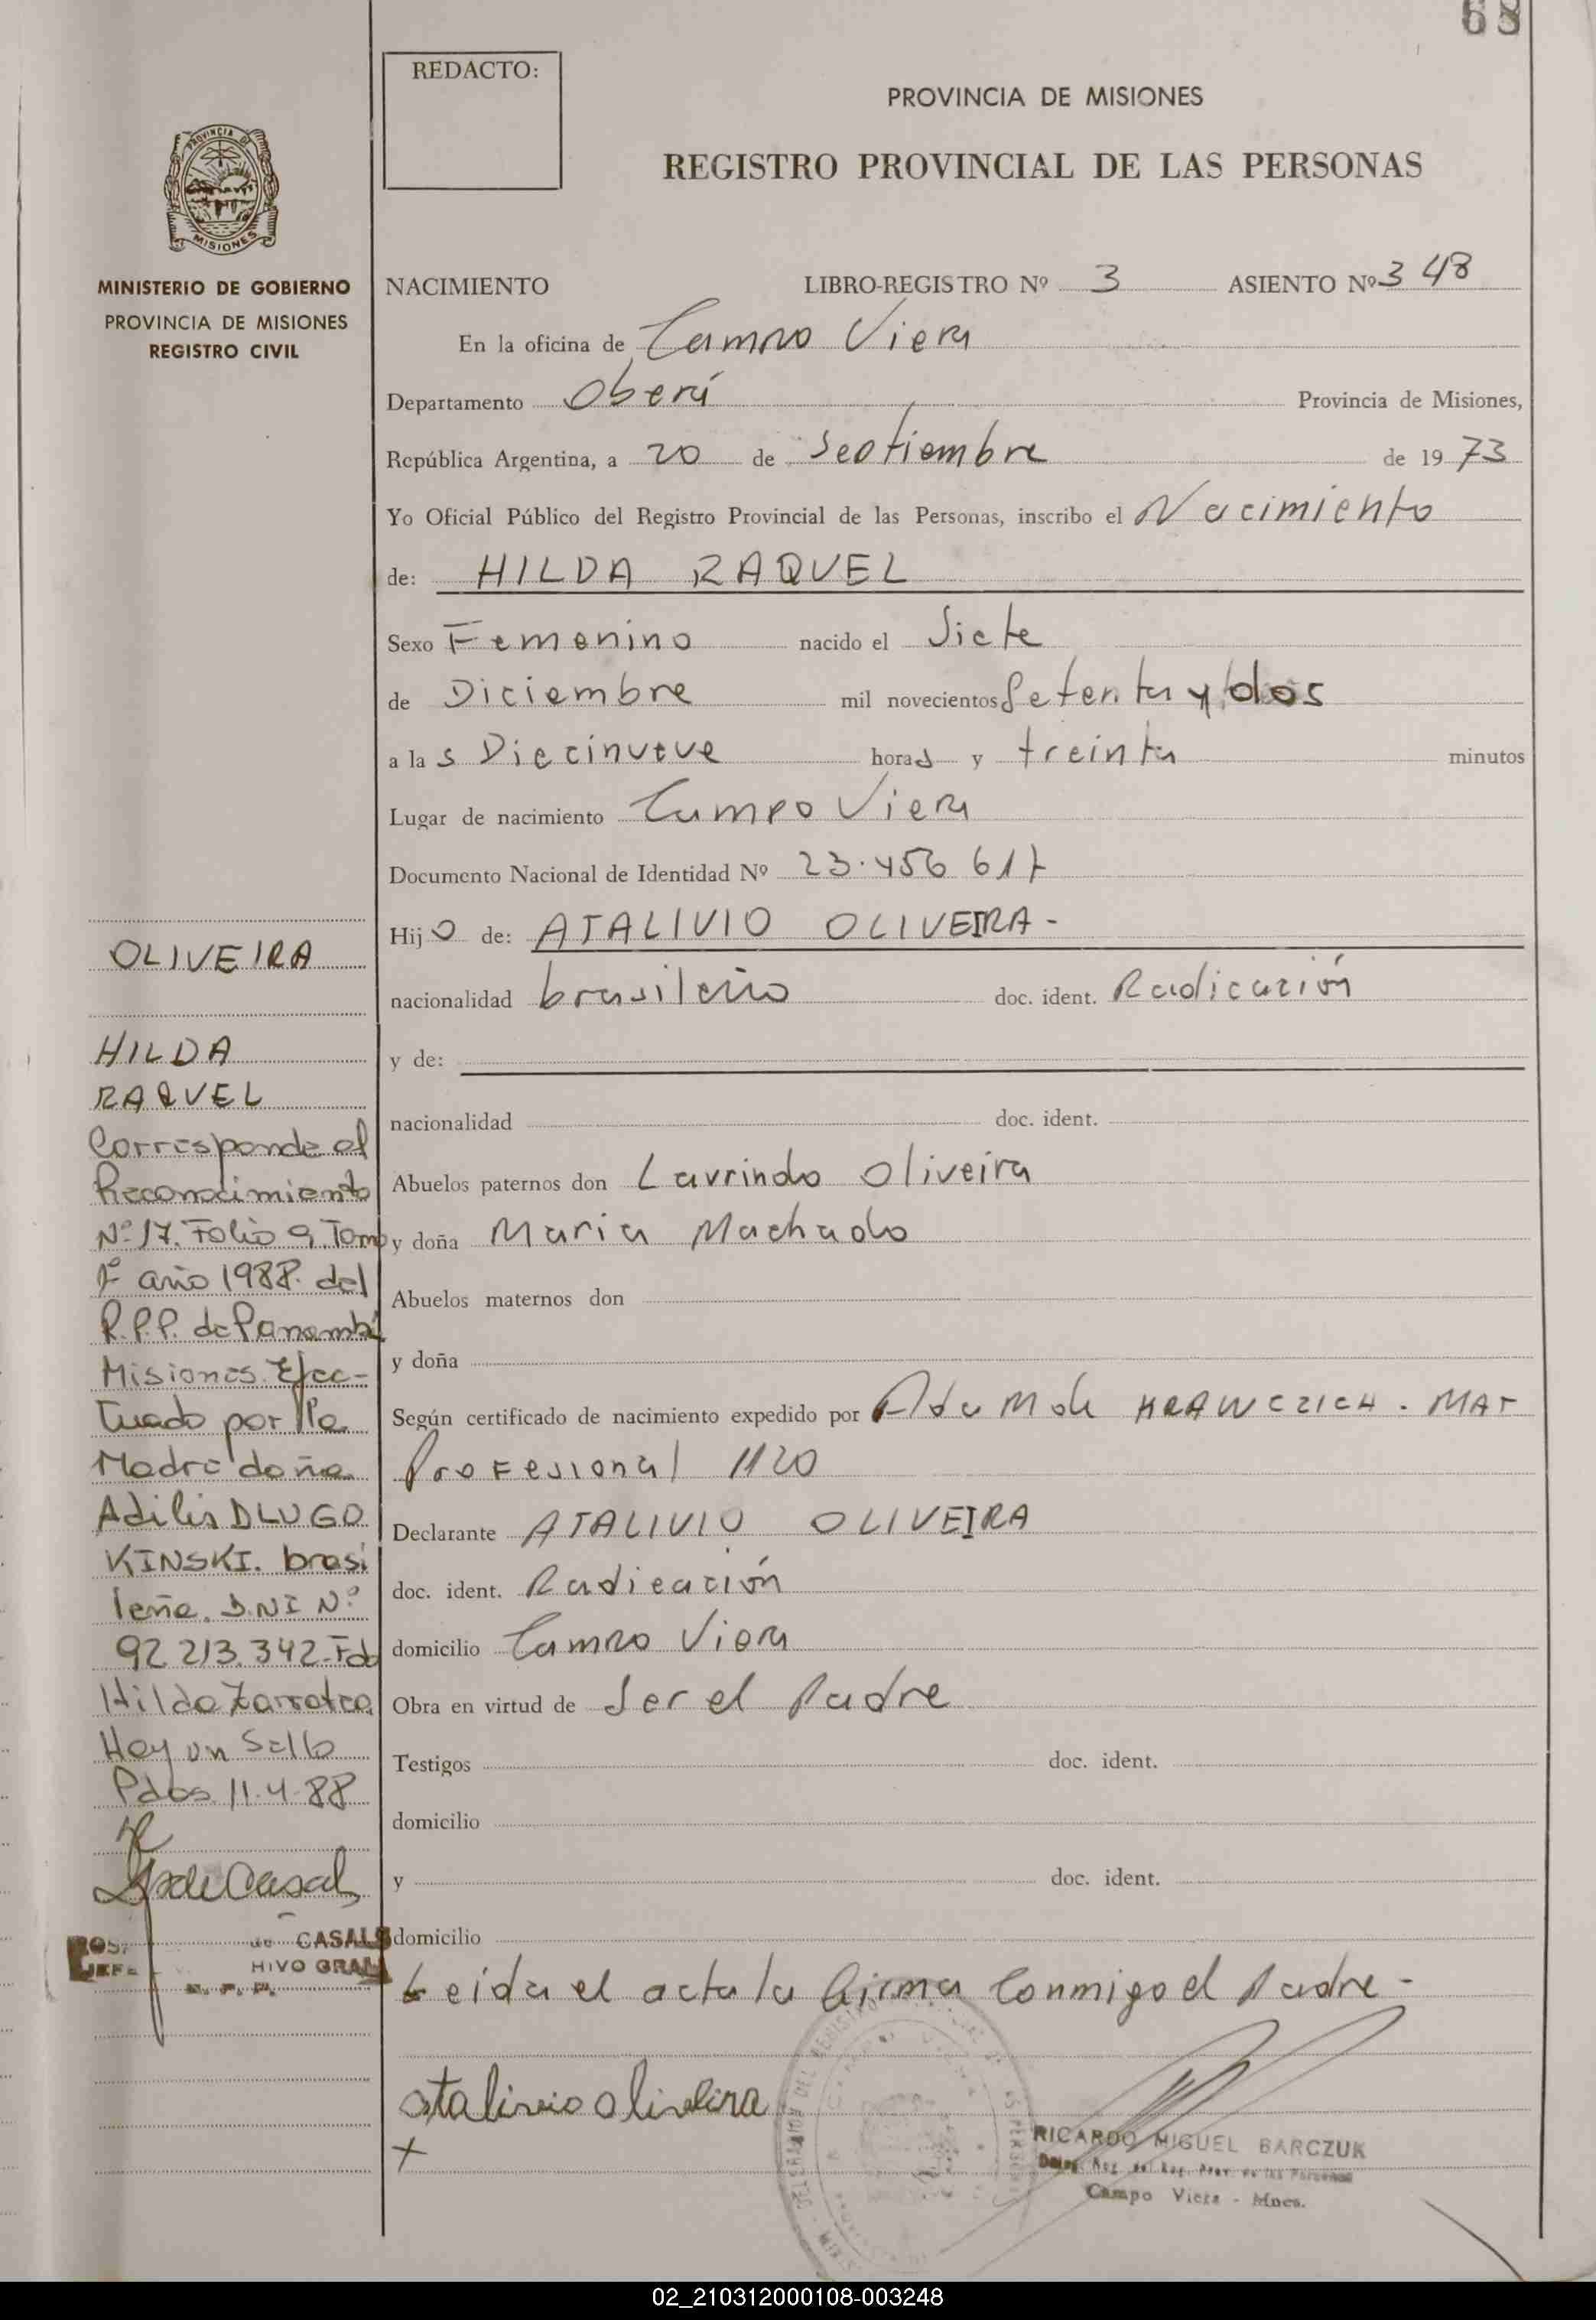 68
REDACTO:
PROVINCIA DE MISIONES
REGISTRO PROVINCIAL DE LAS PERSONAS
PROVINCIA DE
MISIONES
MINISTERIO DE GOBIERNO
PROVINCIA DE MISIONES
REGISTRO CIVIL
NACIMIENTO LIBRO-REGISTRO Nº 3 ASIENTO Nº 348
En la oficina de Campo Viera
Departamento Oberá Provincia de Misiones,
República Argentina, a 20 de Septiembre de 1973
Yo Oficial Público del Registro Provincial de las Personas, inscribo el Nacimiento
de: HILDA RAQUEL
Sexo Femenino nacido el Siete
de Diciembre mil novecientos Setenta y dos
a las Diecinueve horas y treinta minutos
Lugar de nacimiento Campo Viera
Documento Nacional de Identidad Nº 23.456 617
Hijo de: ATALIVIO OLIVEIRA -
nacionalidad brasileño doc. ident. Radicación
y de:
nacionalidad doc. ident.
Abuelos paternos don Laurindo Oliveira
y doña Maria Machado
Abuelos maternos don
y doña
Según certificado de nacimiento expedido por Ada M de KRAWCZICH . MAT
Profesional 1120
Declarante ATALIVIO OLIVEIRA
doc. ident. Radicación
domicilio Campo Viera
Obra en virtud de Ser el Padre
Testigos doc. ident.
domicilio
y doc. ident.
domicilio
Leida el acta la firma Conmigo el Padre -
atalivio oliveira
x
RICARDO MIGUEL BARCZUK
Campo Viera - Mnes.
OLIVEIRA
HILDA
RAQUEL
Corresponde al
Reconocimiento
Nº 17. Folio 9. Tomo
1º año 1988. del
R.P.P. de Panambi
Misiones. Efec-
tuado por la
Madre doña
Adilis DLUGO
KINSKI. brasi
leña. D.NI Nº
92.213.342-Fdo
Hilda Zarratea
Hay un Sello
Pdas. 11.4.88
de CASALS
HIVO GRAL
R. P. P.
02_210312000108-003248